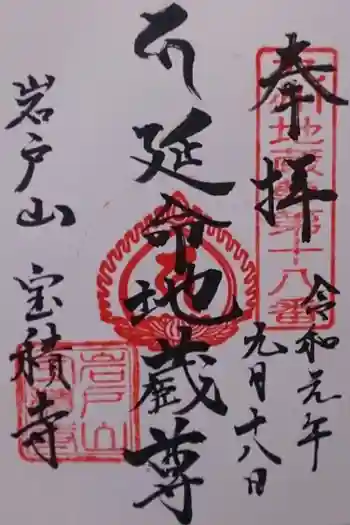 奉拝
令和元年
九月十八日
延命地蔵尊
岩戸山
宝積寺
地蔵尊第十八番
岩戸山